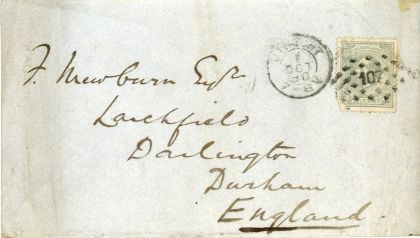 F. Mewburn Esqr.
Larchfield
Darlington
Durham
England.
UTRECHT
107